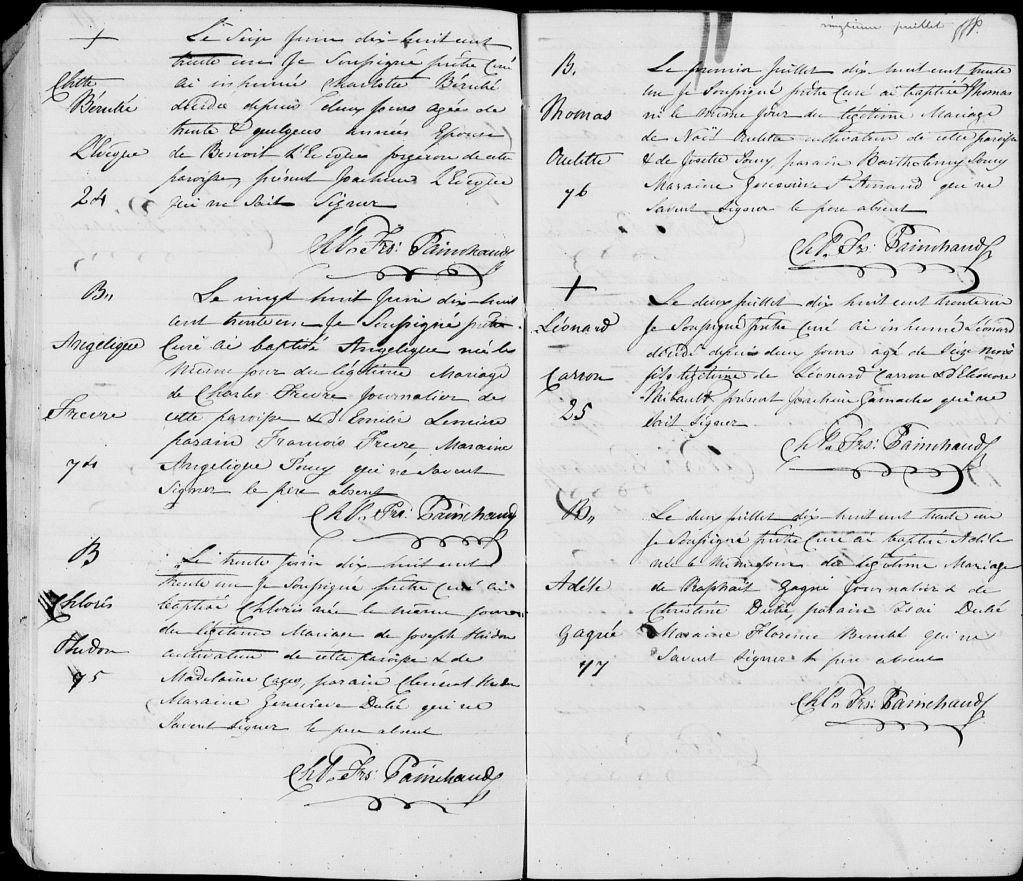 +
Chtte
Bérubé
L'Evêque
24
Le Seize Juin dix-huit cent
trente un, Je Soussigné prêtre Curé
ai inhumé Charlotte Bérubé
décédée depuis deux jours agée de
trente & quelques années Epouse
de Benoit L'Evêque forgeron de cette
paroisse, présent Joachim L'Evêque
qui ne Sait Signer
Ch. Frs: Painchaud
B.
Angélique
Frevre
74
Le vingt huit Juin dix-huit
cent trente un Je Soussigné prêtre
Curé ai baptisé Angelique née le
même jour du légitime Mariage
de Charles Frevre Journalier de
cette paroisse & d'Emilie Lemieux
parain Francois Frevre Maraine
Angelique qui ne Savent
Signer le père absent
Ch. Frs: Painchaud
B
Chloris
Hudon
75
Le trente Juin dix-huit cent
trente un Je Soussigné prêtre Curé ai
baptisé Chloris né le même jour
du légitime Mariage de Joseph Hudon
cultivateur de cette paroisse & de
Madelaine parain Clément Hudon
Maraine Geneviève Dubé qui ne
Savent Signer le père absent
Ch. Frs: Painchaud
juillet
B.
Thomas
Oulette
76
Le premier Juillet dix huit cent trente
un Je Soussigné prêtre Curé ai baptisé Thomas
né le même jour du légitime Mariage
de Noël Oulette cultivateur de cette paroisse
& de Josette parain Barthelemy
Maraine Genevieve St Amand qui ne
Savent Signer le père absent
Ch. Frs: Painchaud
+
Léonard
Carron
25
Le deux juillet dix huit cent trente un
Je Soussigné prêtre Curé ai inhumé Léonard
décédé depuis deux jours agé de Seize mois
fils légitime de Léonard Carron & d'Eléonore
Thibault, présent Joachim Gamache qui ne
Sait Signer
Ch. Frs: Painchaud
B.
Adéle
Gagnée
77
Le deux juillet dix-huit cent trente un
Je Soussigné prêtre Curé ai baptisé Adéle
née le même jour du légitime Mariage
de Raphaël Gagné Journalier & de
Christine Dubé, parain Isai Dubé
Maraine Florence Bérubé qui ne
Savent Signer le père absent
Ch. Frs: Painchaud